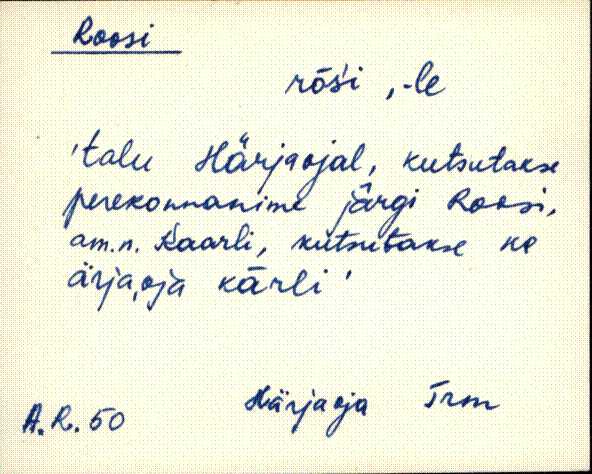 Roosi
rōśi, -le
'talu Härjaojal, kutsutakse
perekonnanime järgi Roosi,
am.n. Kaarli, kutsutakse ka
ärja,oja kārli'
Härjaoja Trm
A.R. 50